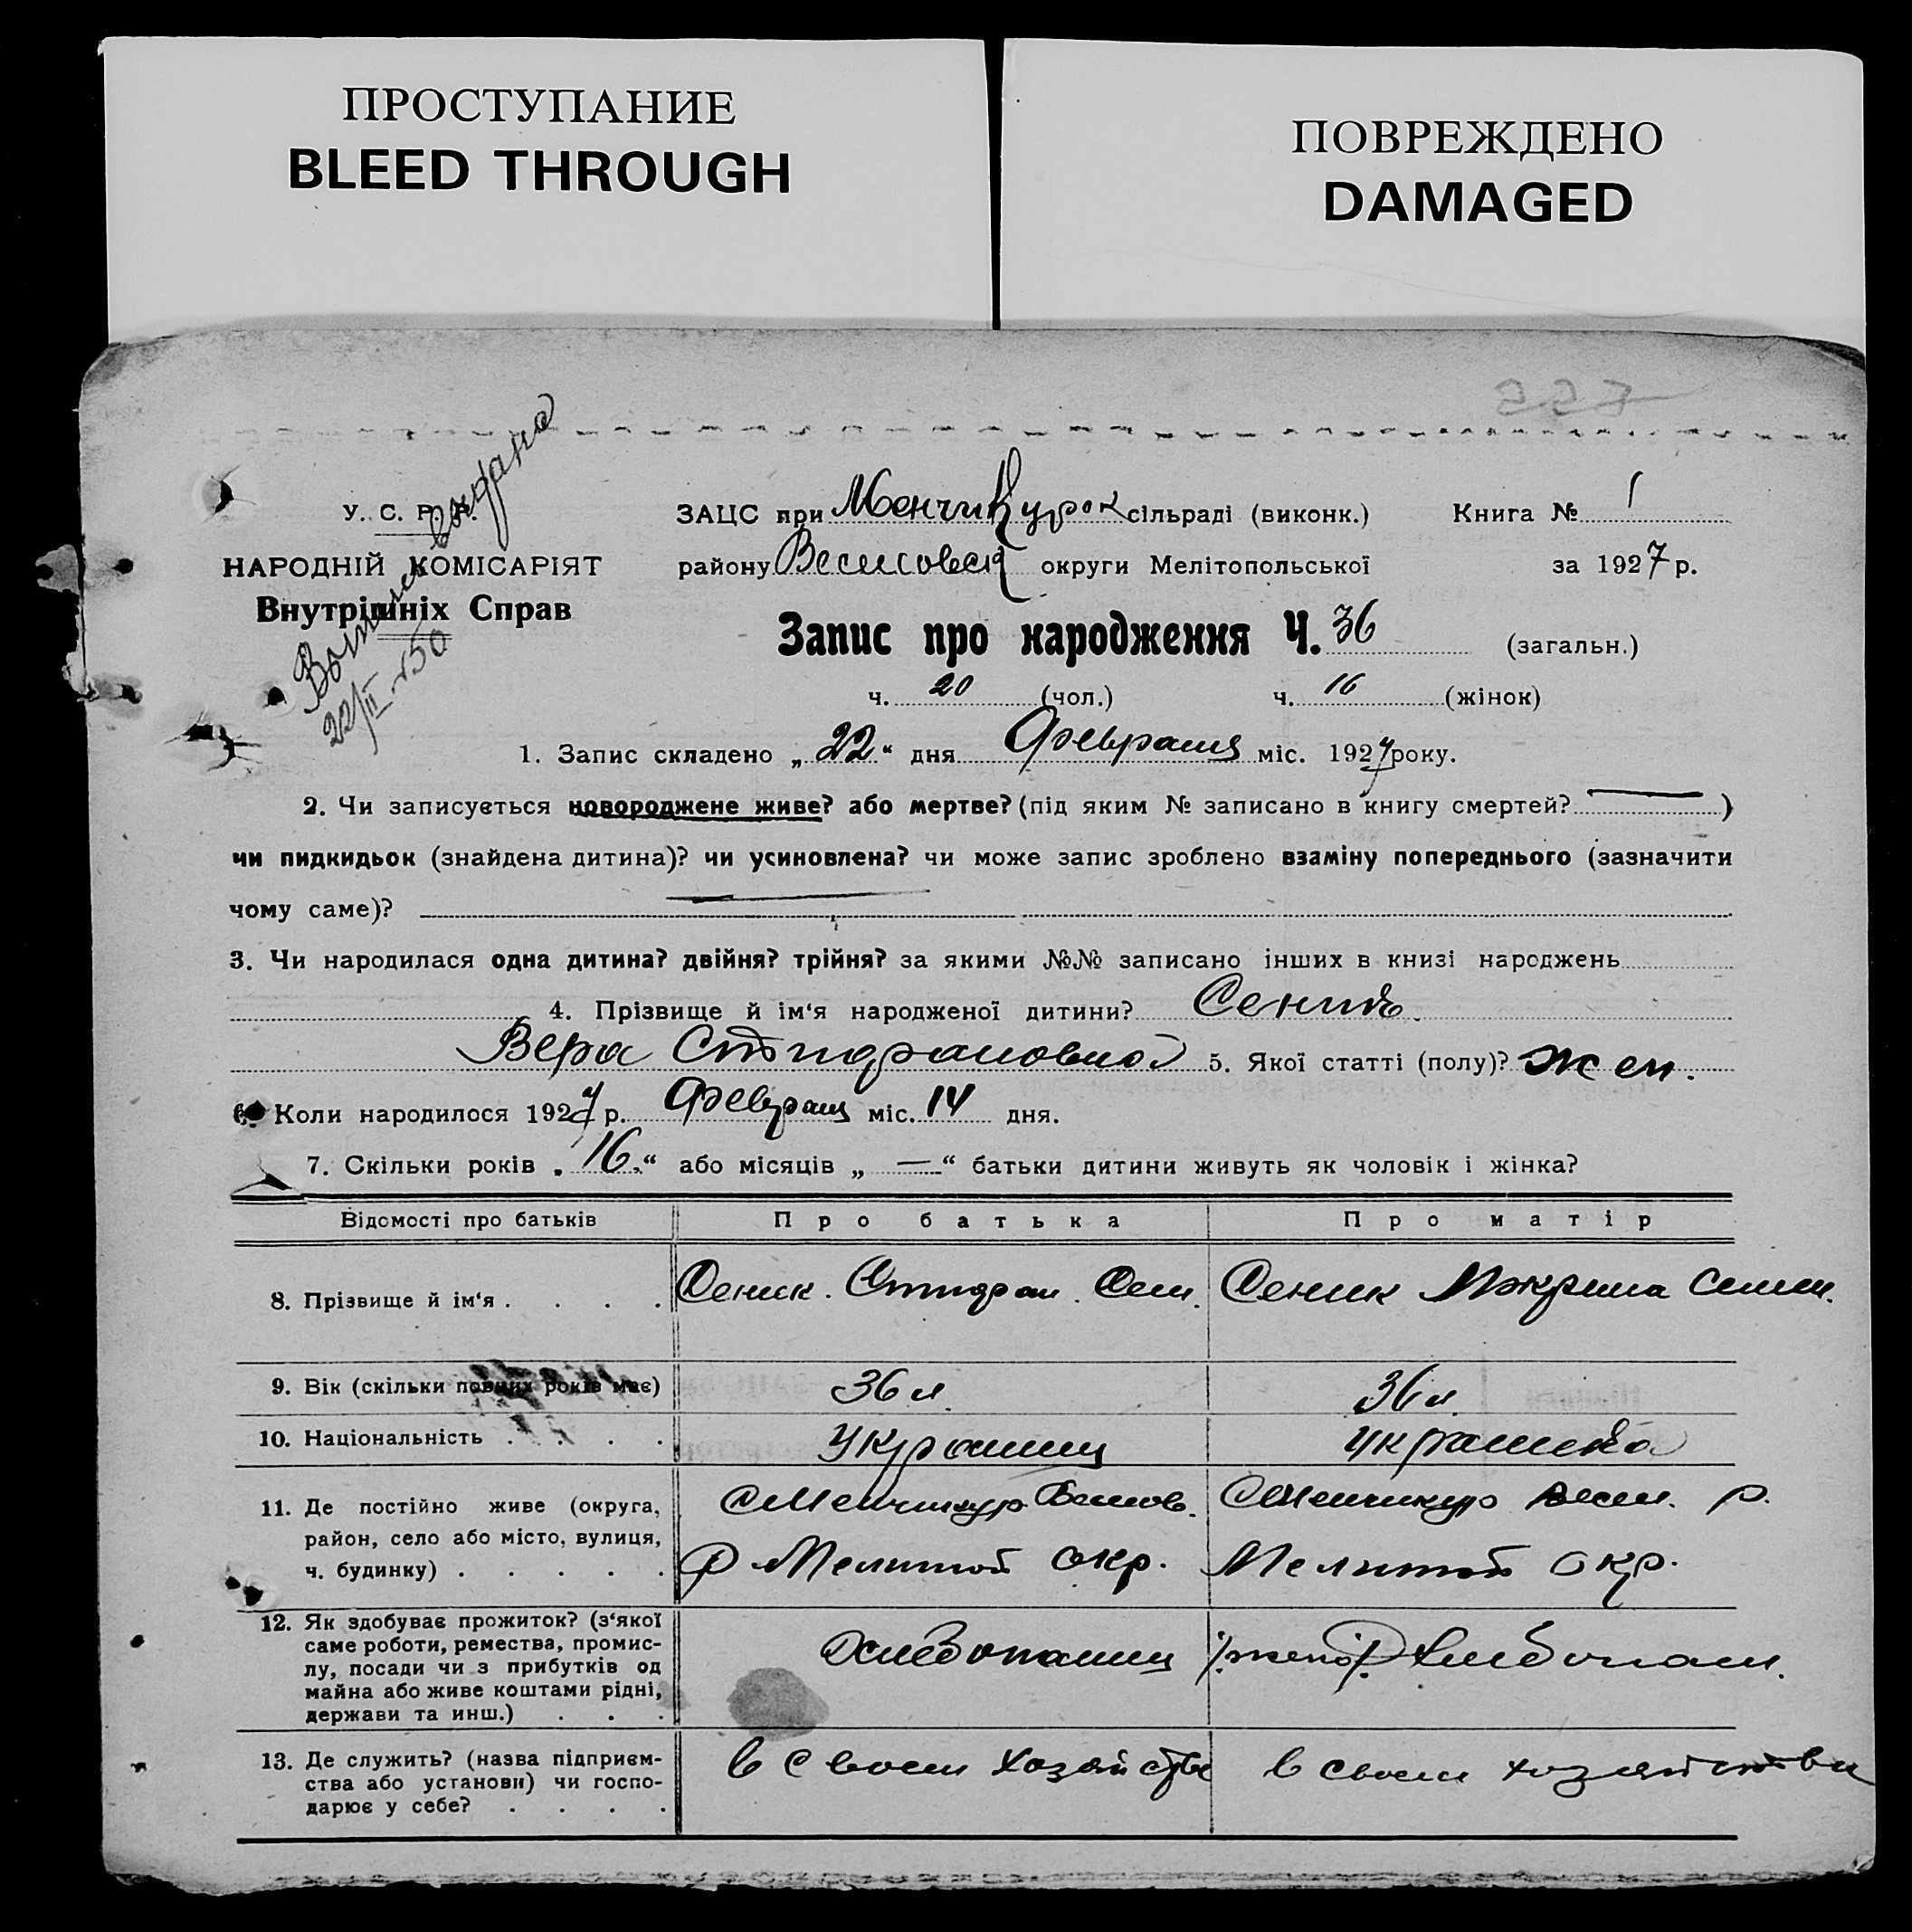 ПРОСТУПАНИЕ
BLEED THROUGH
ПОВРЕЖДЕНО
DAMAGED
У. С. Р. Р.
НАРОДНІЙ КОМІСАРІЯТ
Внутрішніх Справ
22/II 50
ЗАЦС при Менчикурок сільраді (виконк.) Книга № 1
району Веселовск округи Мелітопольської за 1927 р.
Запис про народження Ч. 36 (загальн.)
ч. 20 (чол.) ч. 16 (жінок)
1. Запис складено „22“ дня Февраля міс. 1927 року.
2. Чи записується новороджене живе? або мертве? (під яким № записано в книгу смертей? —)
чи пидкидьок (знайдена дитина)? чи усиновлена? чи може запис зроблено взаміну попереднього (зазначити
чому саме)?
3. Чи народилася одна дитина? двійня? трійня? за якими №№ записано інших в книзі народжень
4. Прізвище й ім‘я народженої дитини? Сеник
Вера 5. Якої статті (полу)? жен.
6. Коли народилося 1927 р. Февраля міс. 14 дня.
7. Скільки років „16“ або місяців „—“ батьки дитини живуть як чоловік і жінка?
Відомості про батьків Про батька Про матір
8. Прізвище й ім‘я . . . . Сеник . Сем. Сеник Мокрина Семен.
9. Вік (скільки повних років має) 36 л. 36 л.
10. Національність . . . . Украинец Украинка
11. Де постійно живе (округа, район, село або місто, вулиця, ч. будинку) . . . . .
с Менчикур Веселов. р Мелитоп окр.
с Менчикур Весел. р. Мелитоп окр.
12. Як здобуває прожиток? (з‘якої саме роботи, ремества, промислу, посади чи з прибутків од майна або живе коштами рідні, держави та инш.) . . .
Хлебопашец
13. Де служить? (назва підприємства або установи) чи господарює у себе? . . . .
в своем хозяйстве
в своем хозяйстве